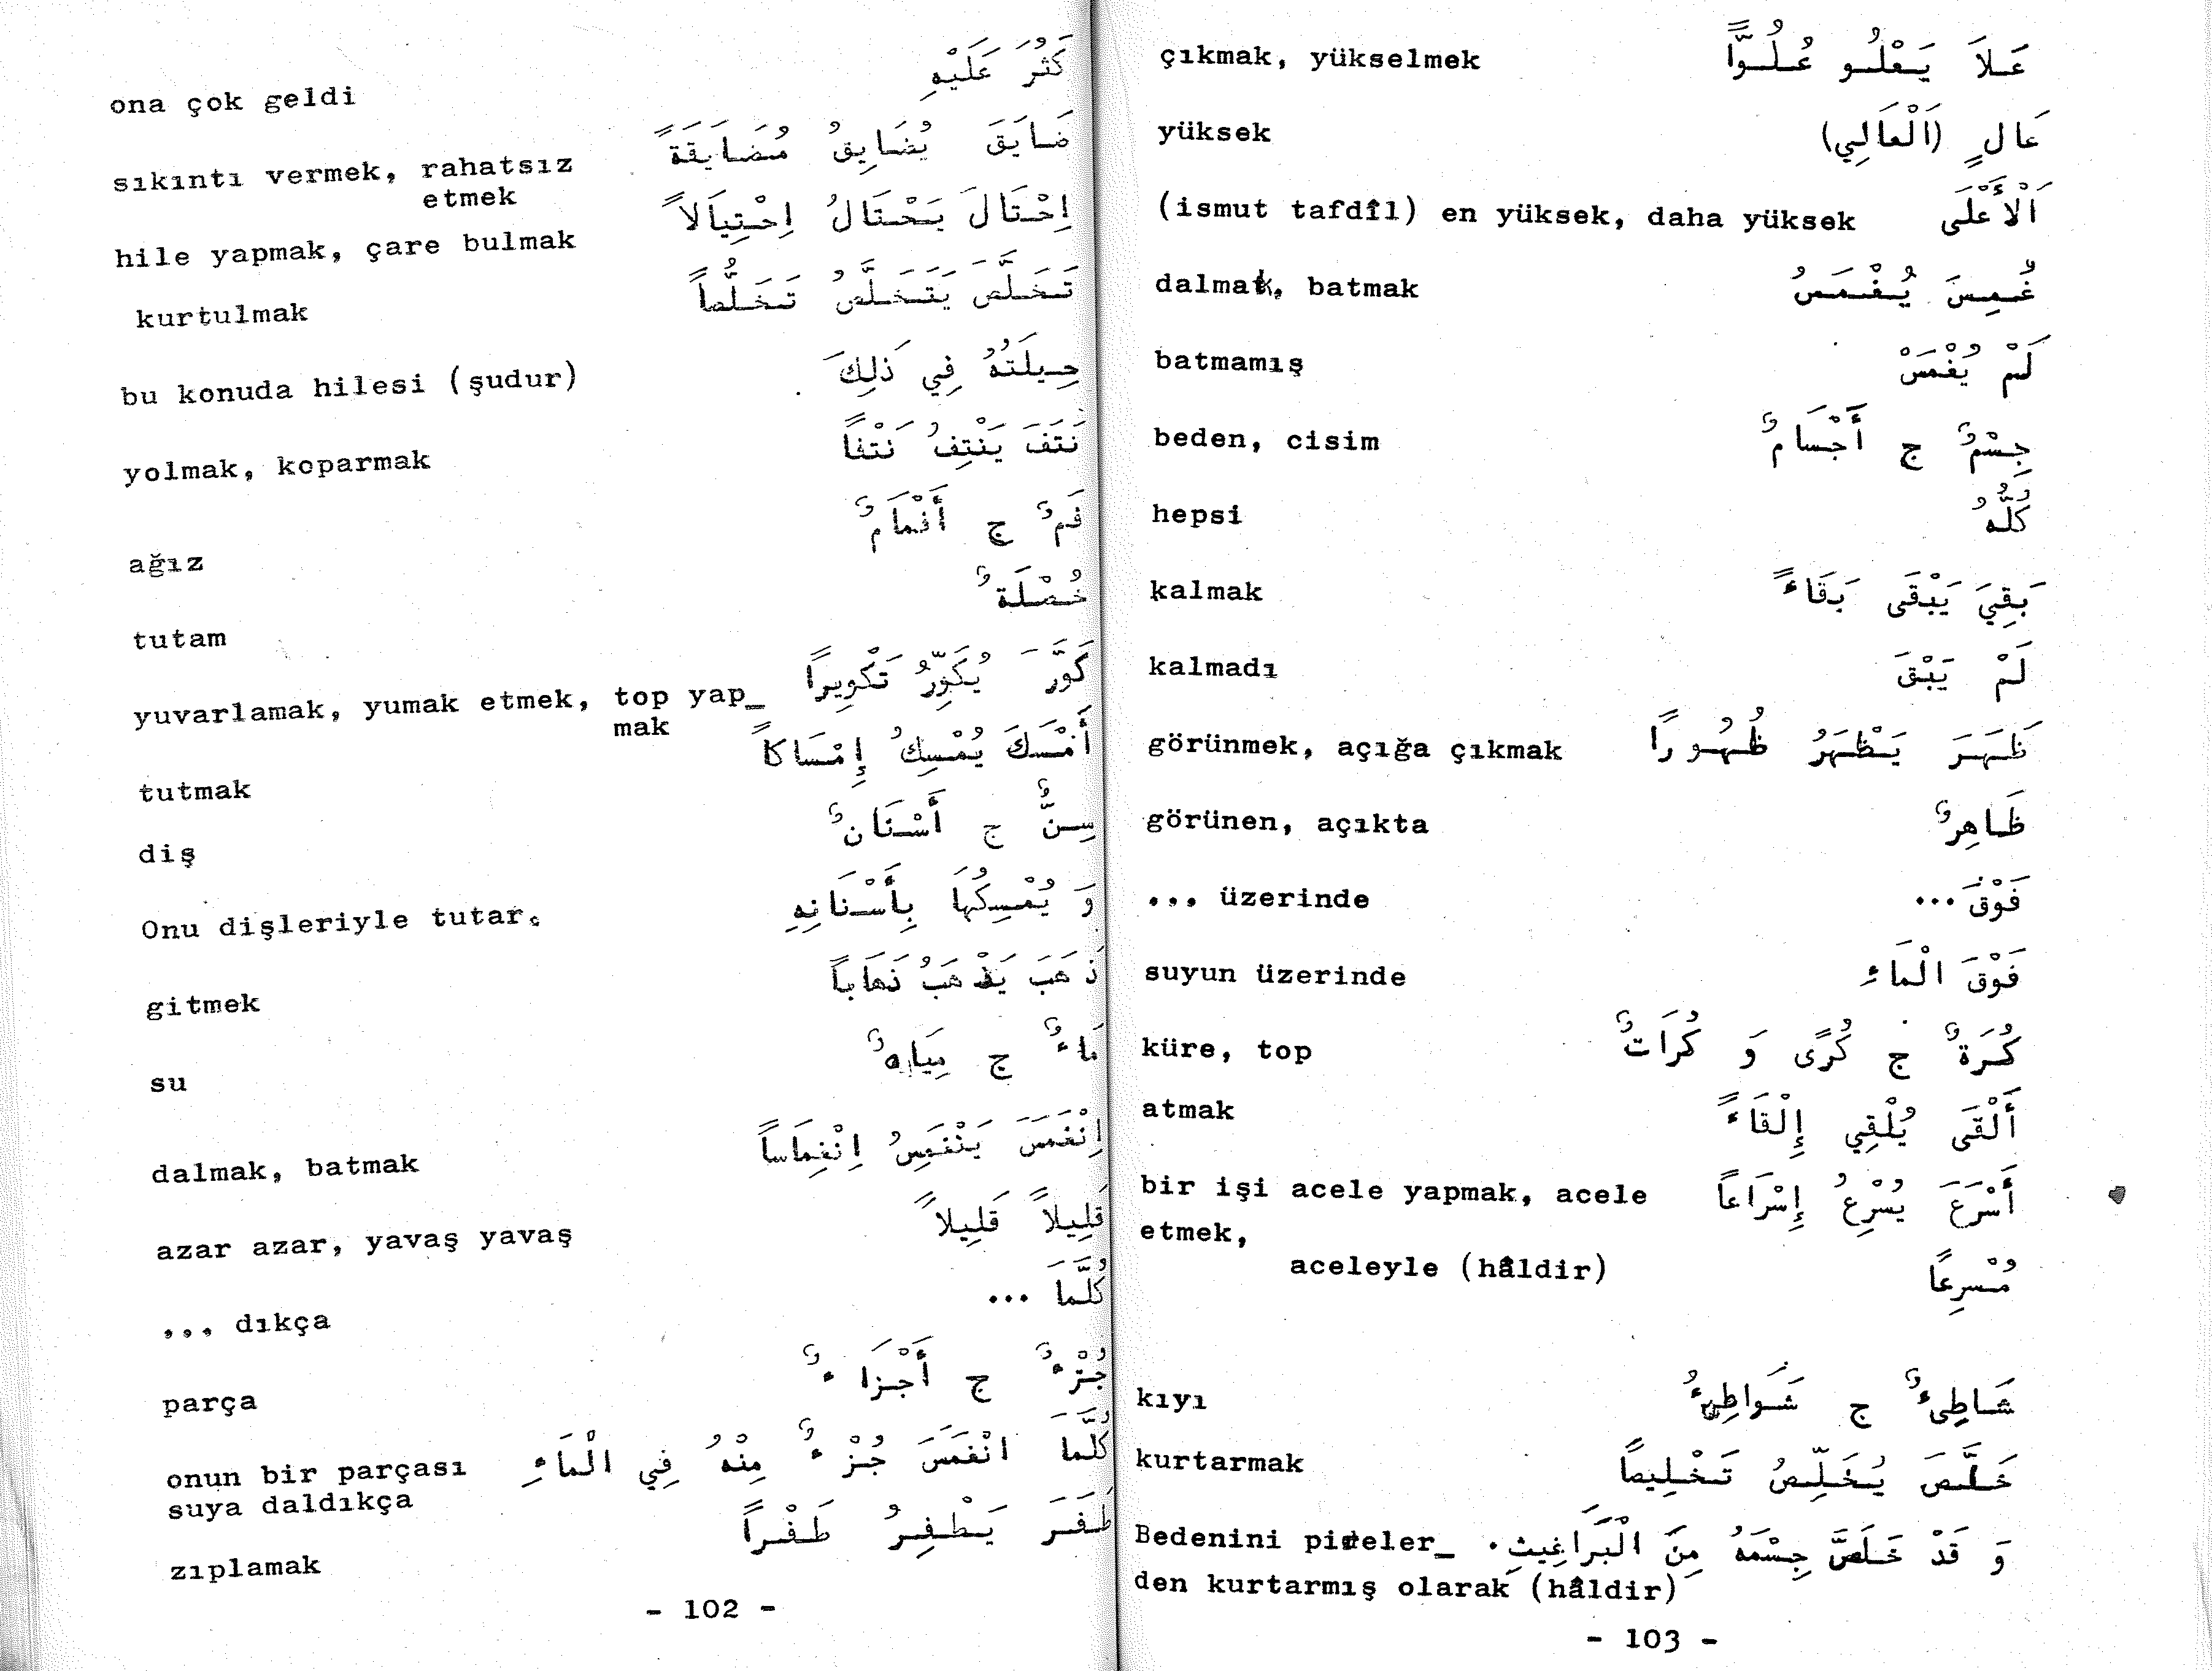 ona çok geldi كَثُرَ عَلَيْهِ
ضَايَقَ يُضَايِقُ مُضَايَقَةً
sıkıntı vermek, rahatsız
etmek
hile yapmak, çare bulmak اِحْتَالَ يَحْتَالُ اِحْتِيَالاً
kurtulmak تَخَلَّصَ يَتَخَلَّصُ تَخَلُّصاً
bu konuda hilesi (şudur) حِيلَتُهُ فِي ذَلِكَ
yolmak, koparmak نَتَفَ يَنْتِفُ نَتْفاً
ağız فَمٌ ج أَفْمَامٌ
tutam خُصْلَةٌ
yuvarlamak, yumak etmek, top yap_ كَوَّرَ يُكَوِّرُ تَكْوِيرًا
mak
tutmak أَمْسَكَ يُمْسِكُ إِمْسَاكاً
diş سِنٌّ ج أَسْنَانٌ
Onu dişleriyle tutar. وَ يُمْسِكُهَا بِأَسْنَانِهِ
gitmek ذَهَبَ يَذْهَبُ ذَهَاباً
su مَاءٌ ج مِيَاهٌ
dalmak, batmak اِنْغَمَسَ يَنْغَمِسُ اِنْغِمَاساً
azar azar, yavaş yavaş قَلِيلاً قَلِيلاً
... dıkça كُلَّمَا ...
parça جُزْءٌ ج أَجْزَاءٌ
onun bir parçası كُلَّمَا انْغَمَسَ جُزْءٌ مِنْهُ فِي الْمَاءِ
suya daldıkça
zıplamak طَفَرَ يَطْفِرُ طَفْراً
- 102 -
çıkmak, yükselmek عَلاَ يَعْلُو عُلُوًّا
yüksek عَالٍ (اَلْعَالِي)
(ismut tafdîl) en yüksek, daha yüksek اَلْأَعْلَى
dalmak, batmak غُمِسَ يُغْمَسُ
batmamış لَمْ يُغْمَسْ
beden, cisim جِسْمٌ ج أَجْسَامٌ
hepsi كُلُّهُ
kalmak بَقِيَ يَبْقَى بَقَاءً
kalmadı لَمْ يَبْقَ
görünmek, açığa çıkmak ظَهَرَ يَظْهَرُ ظُهُورًا
görünen, açıkta ظَاهِرٌ
... üzerinde فَوْقَ ...
suyun üzerinde فَوْقَ الْمَاءِ
küre, top كُرَةٌ ج كُرًى وَ كُرَاتٌ
atmak أَلْقَى يُلْقِي إِلْقَاءً
bir işi acele yapmak, acele أَسْرَعَ يُسْرِعُ إِسْرَاعاً
etmek,
aceleyle (hâldir) مُسْرِعًا
kıyı شَاطِىءٌ ج شَوَاطِىءُ
kurtarmak خَلَّصَ يُخَلِّصُ تَخْلِيصاً
Bedenini pireler_ وَ قَدْ خَلَصَّ جِسْمَهُ مِنَ الْبَرَاغِيثِ.
den kurtarmış olarak (hâldir)
- 103 -